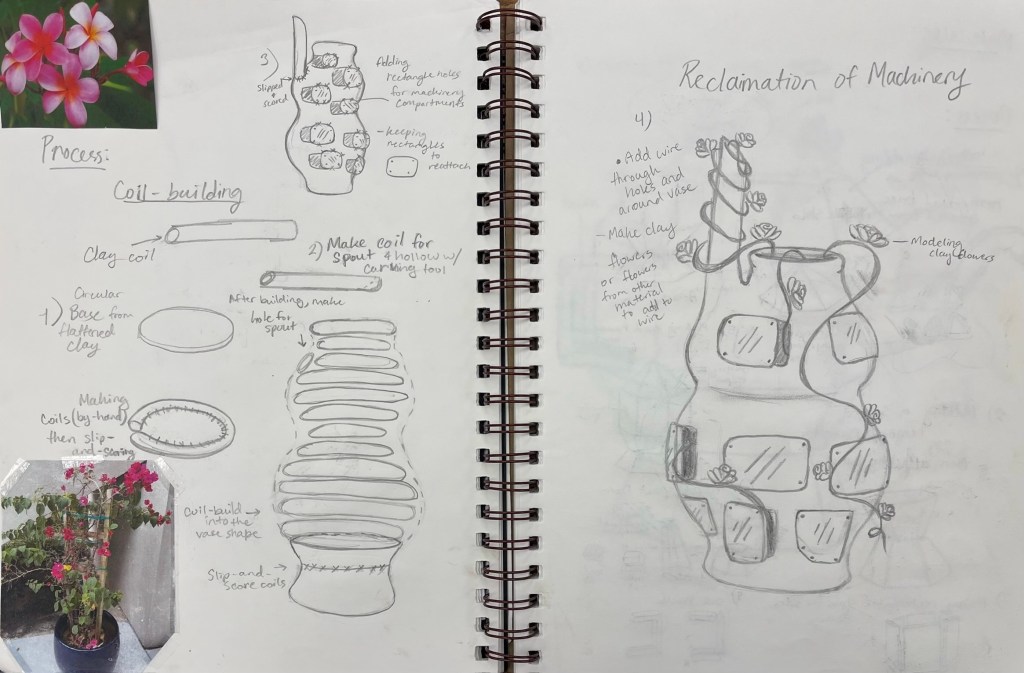 Process:
Coil-building
Clay coil
1) Circular
Base from
flattened
clay
Making
coils (by-hand)
then slip-
and-scoring
2) Make coil for
spout & hollow w/
carving tool
After building, make
hole for
spout
Coil-build
into the
vase shape
Slip-and-
score coils
3)
slipped +
scored
Adding
rectangle holes
for machinery
compartments
- keeping
rectangles
to
reattach
Reclamation of Machinery
4)
• Add wire
through
holes and
around vase
- Make clay
flowers
or flowers
from other
material
to add to
wire
- Modeling
clay flowers